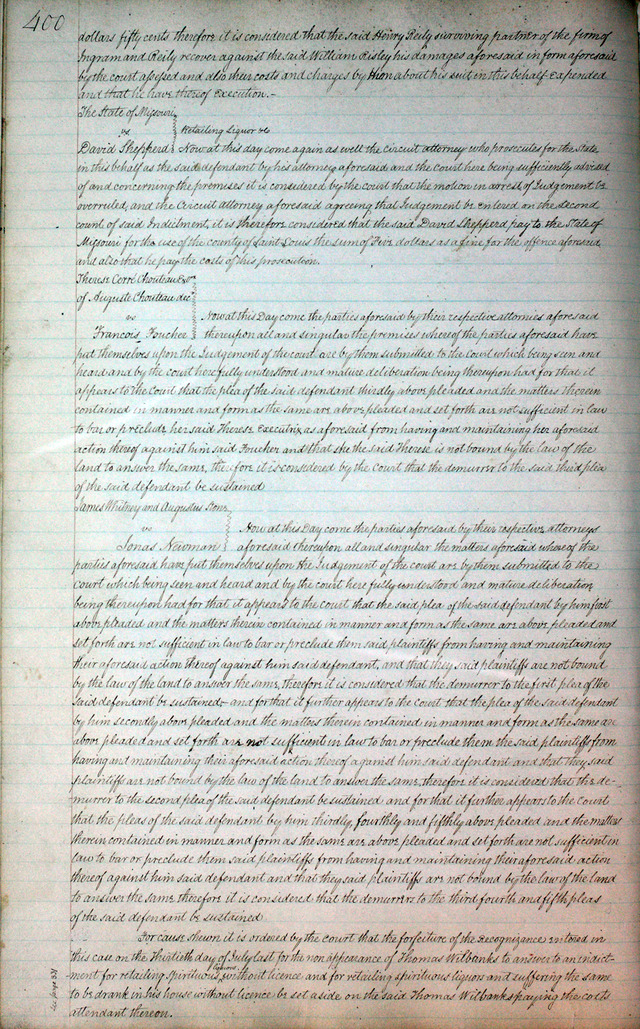 400
dollars fifty cents therefore it is considered that the said Henry Reily surviving partner of the firm of
Ingram and Reily recover against the said William Risley his damages aforesaid in form aforesaid
by the court assessed and also their costs and charges by him about his suit in this behalf expended
and that he have thereof execution.-
The State of Missouri
vs Retailing Liquor &c
David Shepperd Now at this day come again as well the Circuit attorney who prosecutes for the State
in this behalf as the said defendant by his attorney aforesaid and the Court here being sufficiently advised
of and concerning the premises it is considered by the court that the motion in arrest of Judgement be
overruled, and the Circuit attorney aforesaid agreeing that Judgement be entered on the second
count of said Indictment, it is Therefore considered that the said David Shepperd pay to the State of
Missouri for the use of the County of Saint Louis the sum of Five dollars as a fine for the offence aforesaid
and also that he pay the costs of this prosecution.
Therese Cerré Chouteau Extrx
of Auguste Chouteau decd
vs Now at this Day come the parties aforesaid by their respective attornies aforesaid
Francois Foucher thereupon all and singular the premises whereof the parties aforesaid have
put themselves upon the Judgement of the court are by them submitted to the Court which being seen and
heard and by the court here fully understood and mature deliberation being thereupon had for that it
appears to the Court that the plea of the said defendant thirdly above pleaded and the matters therein
contained in manner and form as the same are above pleaded and set forth are not sufficient in law
to bar or preclude her said Therese Executrix as aforesaid from having and maintaining her aforesaid
action thereof against him said Foucher and that she the said Therese is not bound by the law of the
land to answer the same, therefore it is considered by the Court that the demurrer to the said third plea
of the said defendant be sustained
James Whitney and Augustus Jones
vs Now at this Day come the parties aforesaid by their respective attorneys
Jonas Newman aforesaid thereupon all and singular the matters aforesaid whereof the
parties aforesaid have put themselves upon the Judgement of the court are by them submitted to the
court which being seen and heard and by the court here fully understood and mature deliberation
being thereupon had for that it appears to the court that the said plea of the said defendant by him first
above pleaded and the matters therein contained in manner and form as the same are above pleaded and
set forth are not sufficient in law to bar or preclude them said plaintiffs from having and maintaining
their aforesaid action thereof against him said defendant, and that they said plaintiffs are not bound
by the law of the land to answer the same, therefore it is considered that the demurrer to the first plea of the
said defendant be sustained- and for that it further appears to the court that the plea of the said defendant
by him secondly above pleaded and the matters therein contained in manner and form as the same are
above pleaded and set forth are not sufficient in law to bar or preclude them the said plaintiffs from
having ant maintaining their aforesaid action thereof against him said defendant and that they said
plaintiffs are not bound by the law of the land to answer the same, therefore it is considered that the de-
-murrer to the second plea of the said defendant be sustained and for that it further appears to the Court
that the pleas of the said defendant by him thirdly, fourthly and fifthly above pleaded and the matters
therein contained in manner and form as the same are above pleaded and set forth are not sufficient in
law to bar or preclude them said plaintiffs from having and maintaining their aforesaid action
thereof against him said defendant and that they said plaintiffs are not bound by the law of the land
to answer the same therefore it is considered that the demurrer to the third fourth and fifth pleas
of the said defendant be sustained
For cause shewn it is ordered by the court that the forfeiture of the Recognizance entered in
this case on the Thirtieth day of July last for the non appearance of Thomas Wilbanks to answer to an indict-
-ment for retailing spirituous liquors without licence and for retailing spirituous liquors and suffering the same
to be drank in his house without licence be set aside on the said Thomas Wilbanks paying the costs
attendant thereon.
see page 391